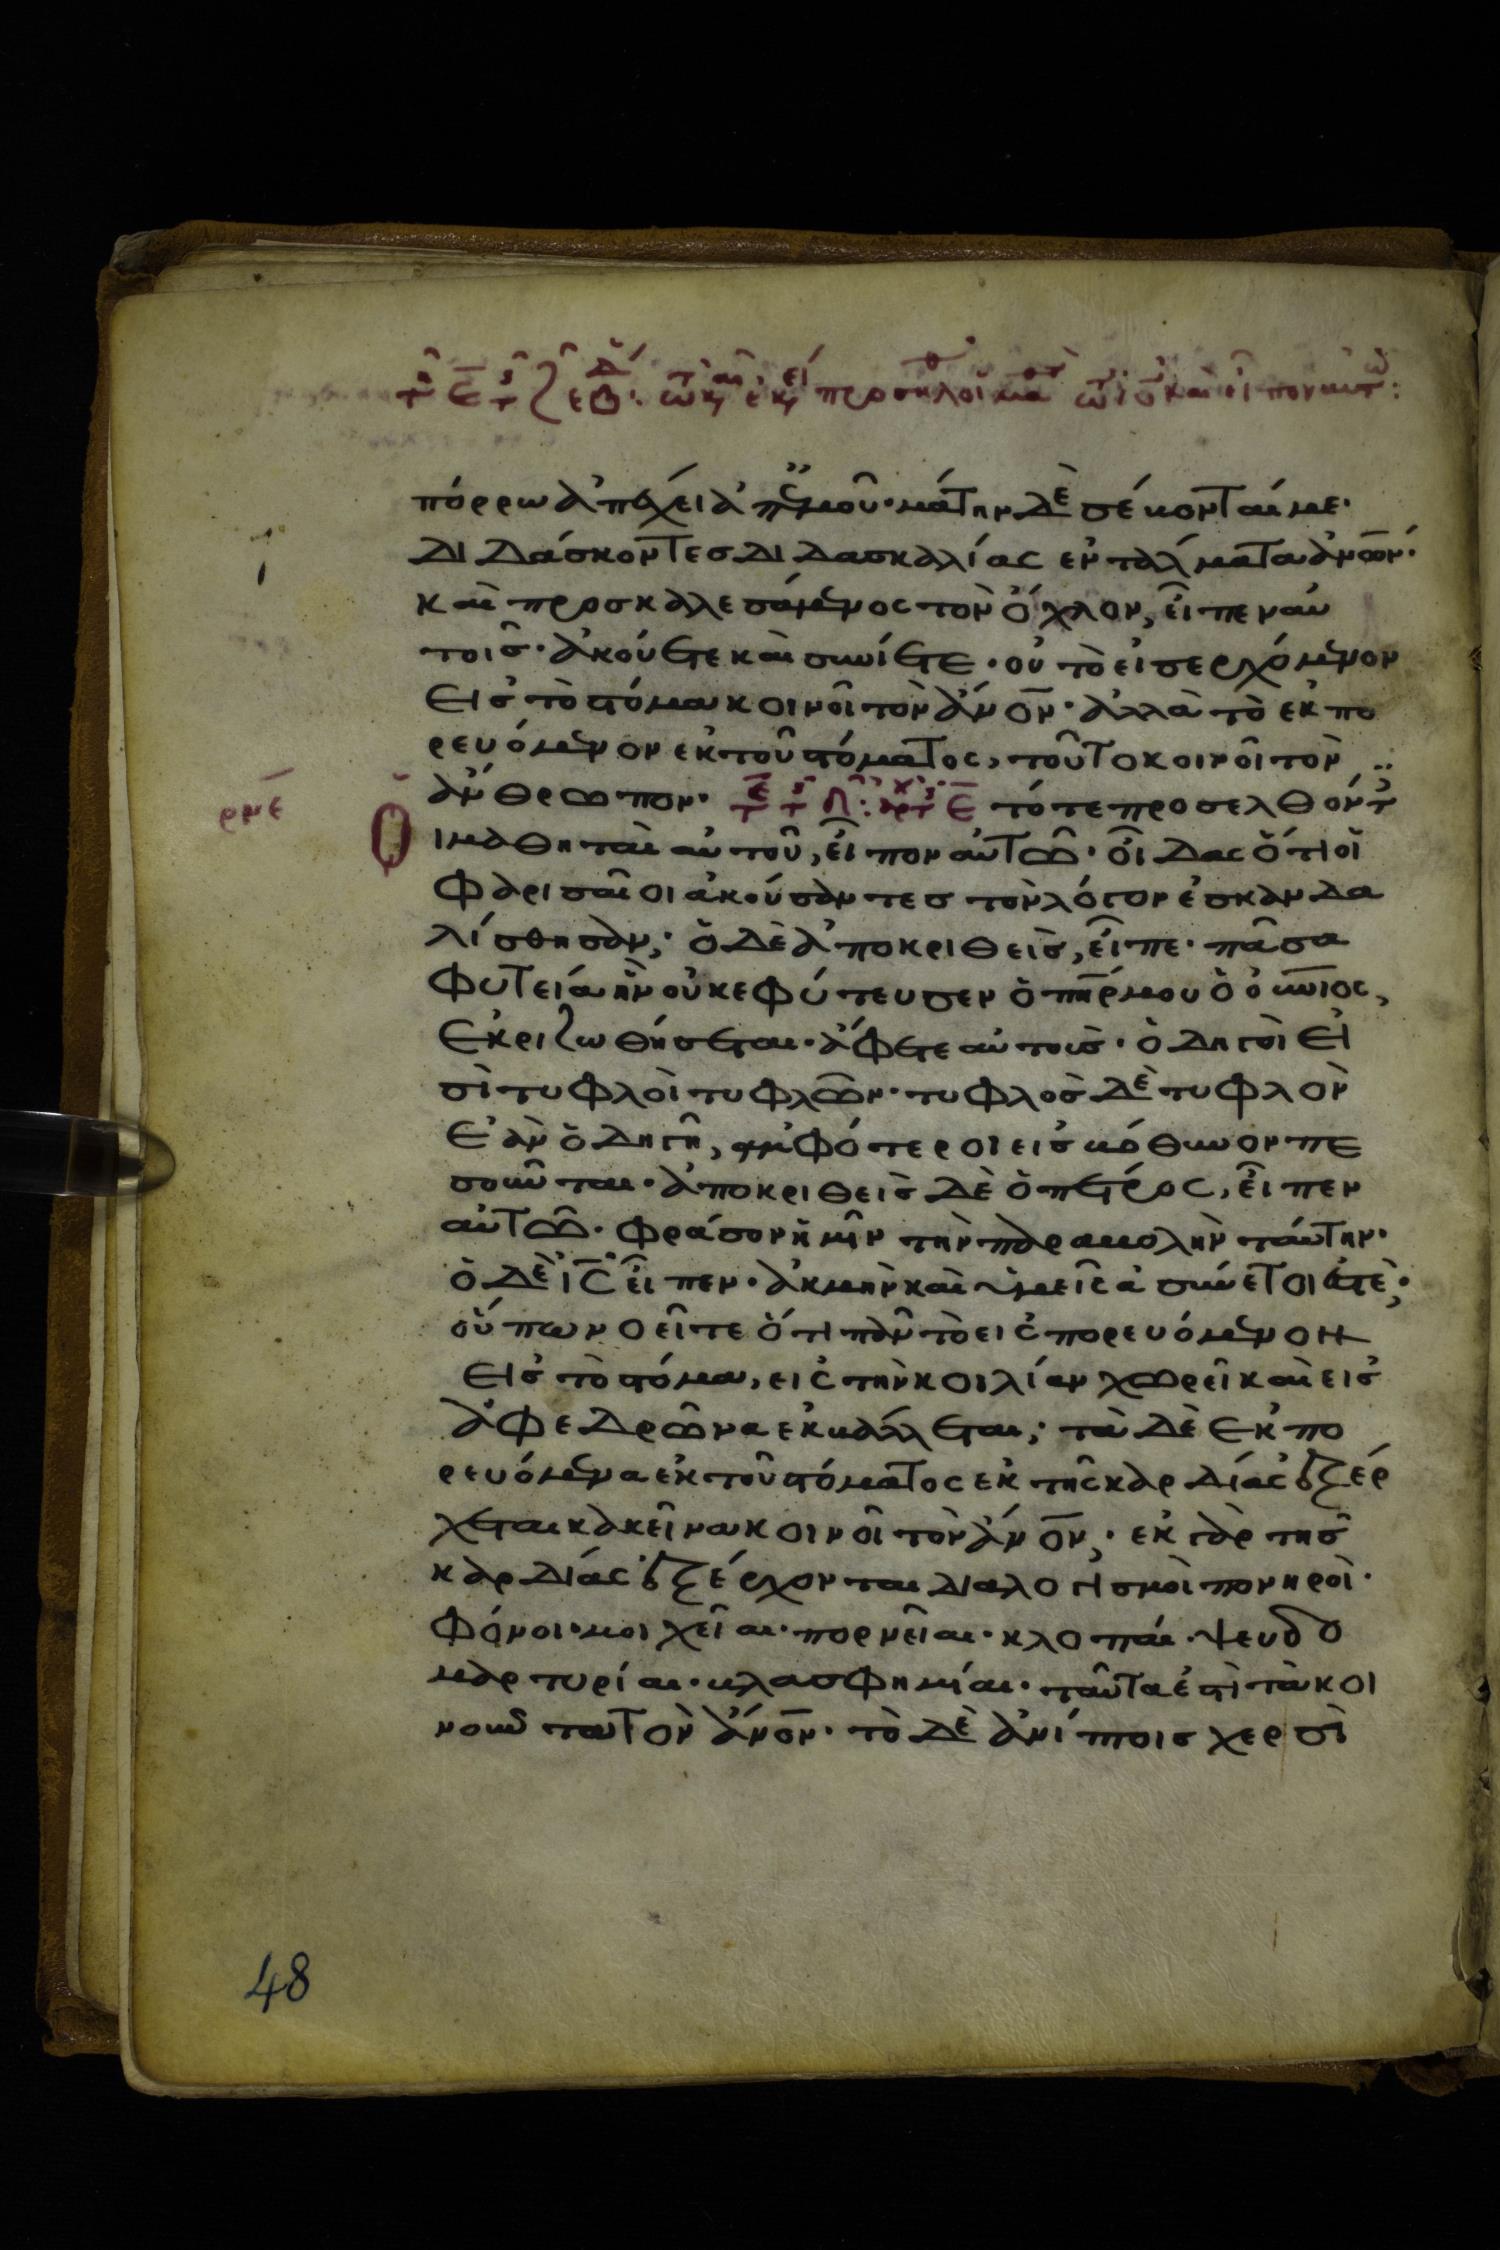 πόρρω ἀπέχει ἀπ ἐμοῦ· μάτην δὲ σέβονταί με·
διδάσκοντες διδασκαλίας ἐντάλματα ἀνων·
καὶ προσκαλεσάμενος τὸν ὄχλον, εἶπεν αὐ
τοῖς· ἀκούετε καὶ συνίετε· οὐ τὸ εἰσερχόμενον
εἰς τὸ στόμα κοινοῖ τὸν ἄνον· ἀλλὰ τὸ ἐκπο
ρευόμενον ἐκ τοῦ στόματος, τοῦτο κοινοῖ τὸν
ρμε ἄνθρωπον· τότε προσελθόντ
Οἱ μαθηταὶ αὐτοῦ, εἶπον αὐτῶ· οἶδας ὅτι οἱ
φαρισαῖοι ἀκούσαντες τὸν λόγον ἐσκανδα
λίσθησαν; ὁ δὲ ἀποκριθεὶς, εἶπε· πᾶσα
φυτεία ἣν οὐκ ἐφύτευσεν ὁ πηρ μου ὁ ουνιος,
ἐκριζωθήσεται· ἄφετε αὐτοὺς· ὁδηγοὶ εἰ
σὶ τυφλοὶ τυφλῶν· τυφλὸς δὲ τυφλὸν
ἐὰν ὁδηγῆ, ἀμφότεροι εἰς βόθυνον πε
σοῦνται· ἀποκριθεὶς δὲ ὁ πέτρος, εἶπεν
αὐτῶ· φράσον ἡμῖν τὴν παραβολὴν ταύτην·
ὁ δὲ ις εἶπεν· ἀκμὴν καὶ ὑμεῖς ἀσύνετοι ἐστὲ;
οὔπω νοεῖτε ὅτι πᾶν τὸ εἰσπορευόμενον
εἰς τὸ στόμα, εἰς τὴν κοιλίαν χωρεῖ καὶ εἰς
ἀφεδρῶνα ἐκβάλλεται; τὰ δὲ ἐκπο
ρευόμενα ἐκ τοῦ στόματος ἐκ τῆς καρδίας ἐξέρ
χεται κἀκεῖνα κοινοῖ τὸν ἄνον· ἐκ γὰρ τῆς
καρδίας ἐξέρχονται διαλογισμοὶ πονηροὶ·
φόνοι· μοιχεῖαι· πορνεῖαι· κλοπαί· ψευδο
μαρτυρίαι· βλασφημίαι· ταῦτα ἐστὶ τὰ κοι
νοῦντα τὸν ἄνον· τὸ δὲ ἀνίπτοις χερσὶ
48